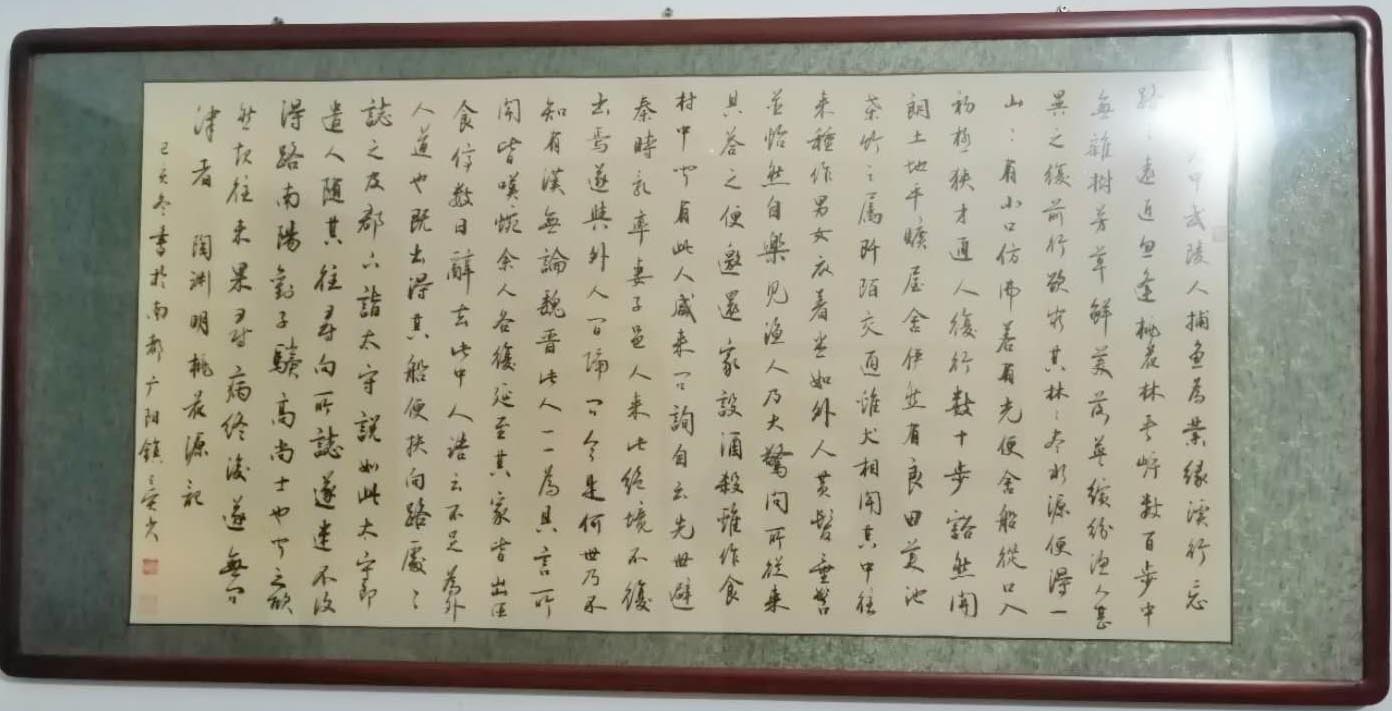 人中武陵人捕鱼为業缘溪行忘
路之遠近忽逢桃花林夹岸数百步中
無雜樹芳草鲜美落英缤纷渔人甚
異之復前行欲穷其林林尽水源便得一
山山有小口仿佛若有光便舍船從口入
初極狭才通人復行数十步豁然開
朗土地平曠屋舍俨然有良田美池
桑竹之属阡陌交通雞犬相闻其中往
来種作男女衣着悉如外人黄髮垂髫
並怡然自樂见渔人乃大驚问所從来
具答之便邀還家設酒殺雞作食
村中闻有此人咸来问詢自云先世避
秦時乱率妻子邑人来此绝境不復
出焉遂與外人间隔问今是何世乃不
知有漢無論魏晋此人一一為具言所
闻皆嘆惋余人各復延至其家皆出酒
食停数日辭去此中人语云不足為外
人道也既出得其船便扶向路處處
誌之及郡下詣太守説如此太守即
遣人随其往尋向所誌遂迷不復
得路南陽劉子驥高尚士也闻之欣
然規往未果尋病终後遂無问
津者 陶渊明桃花源记
己亥冬書於南都广阳鎮